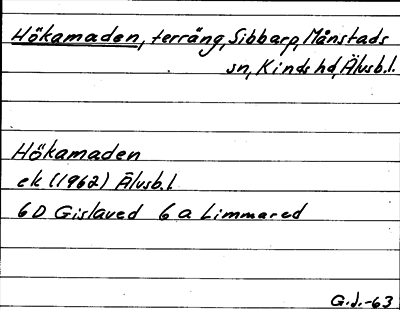 Hökamaden, terräng, Sibbarp, Månstads
sn, Kinds hd, Älvsb.l.
Hökamaden
ek (1962) Älvsb.l
6D Gislaved 6a Limmared
G.J.-63